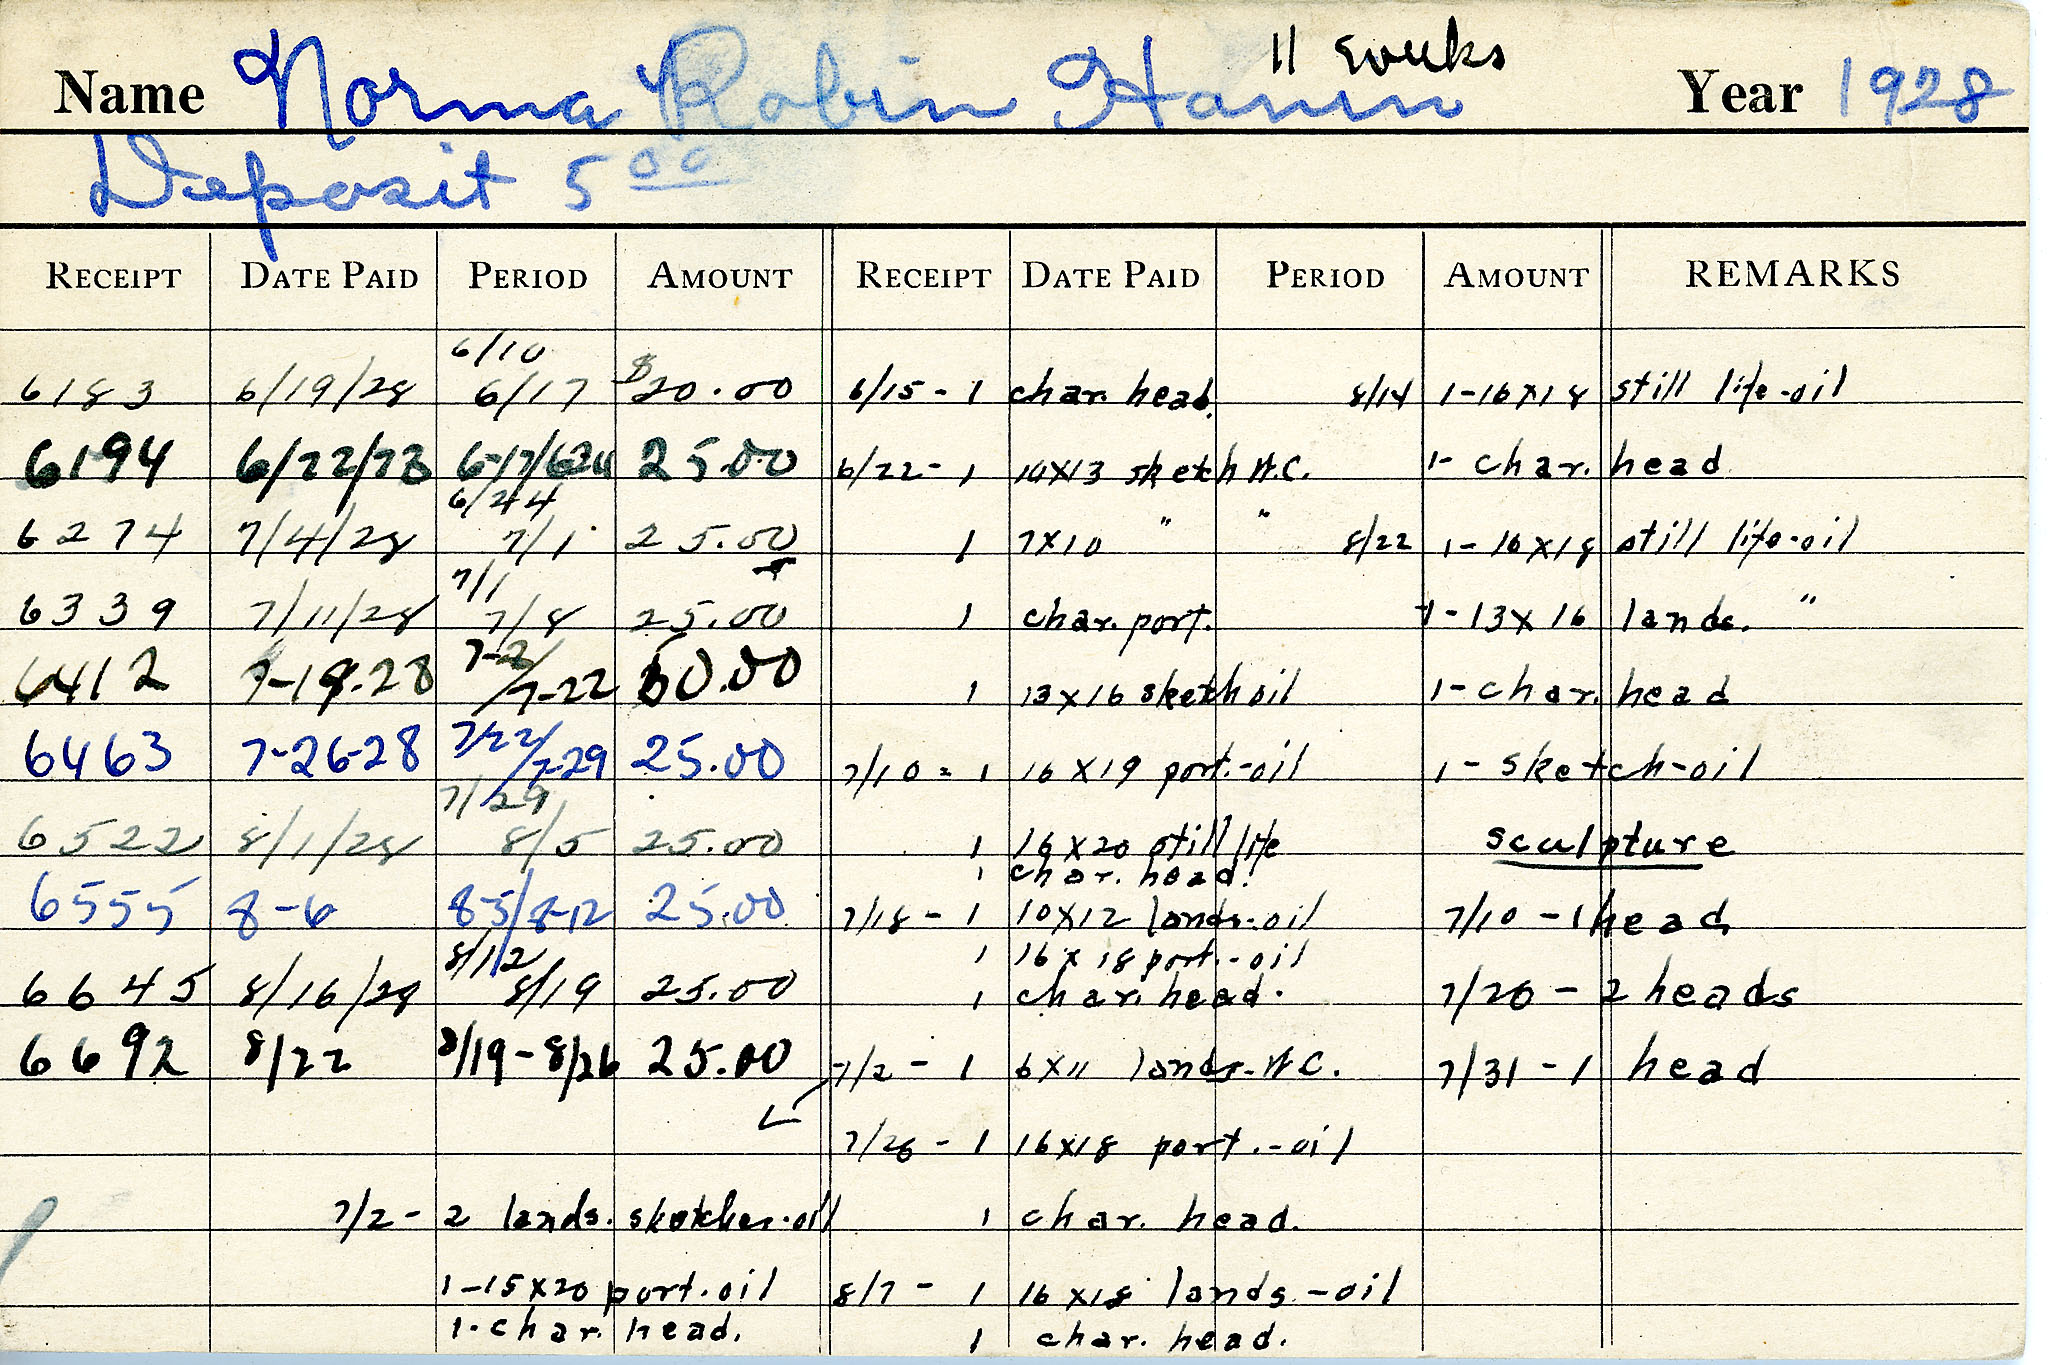 11 weeks
Name Norma Robin Hanin Year 1928
Deposit 5 00
RECEIPT DATE PAID PERIOD AMOUNT RECEIPT DATE PAID PERIOD AMOUNT REMARKS
6/10
6183 6/19/28 6/17 $20.00 6/15-1 char. head. 8/14 1-16x18 still life-oil
6194 6/22/28 25.00 6/22-1 10x13 sketch W.C. 1- char. head
6/24
6274 7/4/28 7/1 25.00 1 7x10 " " 8/22 1-16x18 still life-oil
7/1
6339 7/11/28 7/8 25.00 1 char. port. 1-13x16 lands. "
6412 7-19-28 /7-22 50.00 1 13x16 sketch oil 1-char. head
6463 7-26-28 7/22/7-29 25.00 7/10-1 16x19 port.-oil 1- sketch-oil
7/29
6522 8/1/28 8/5 25.00 1 16x20 still life sculpture
1 char. head.
6555 8-6 8-5/8-12 25.00 7/18-1 10x12 lands-oil 7/10-1 head
8/12 1 16x18 port.-oil
6645 8/16/28 8/19 25.00 1 char. head. 7/20-2 heads
6692 8/22 8/19-8/26 25.00 7/2-1 6x11 lands-W.C. 7/31-1 head
7/26-1 16x18 port.-oil
7/2- 2 lands. sketches-oil 1 char. head.
1-15x20 port.oil 8/7-1 16x18 lands.-oil
1-char. head. 1 char. head.